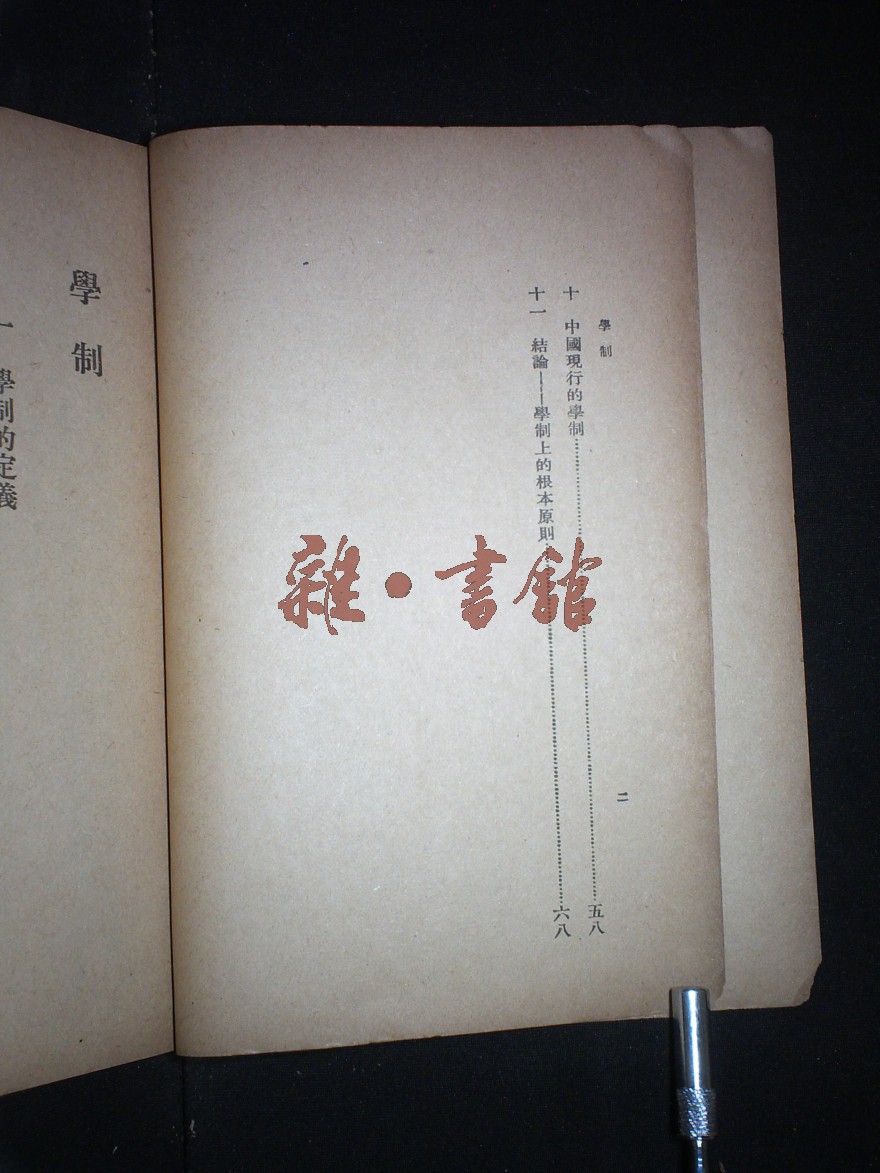 學制
二
十 中國現行的學制……五八
十一 結論——學制上的根本原則……六八
學制
一 學制的定義
雜·書館